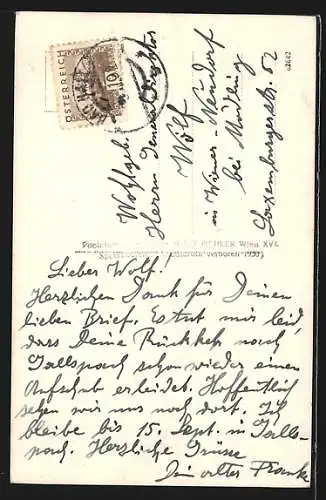 ÖSTERREICH
10 g
Wohlgeb.
Herrn
Wolf
in Wiener-Neudorf
bei Mödling
Laxenburgerstr. 52
62642
Wien XVI.
verboten 1930)
Lieber Wolf!
Herzlichen Dank für Deinen
lieben Brief. Es tut mir leid,
dass Deine Rückkehr nach
Gallspach schon wieder einen
Aufschub erleidet. Hoffentlich
sehen wir uns noch dort. Ich
bleibe bis 15. Sept. in Galls-
pach. Herzliche Grüsse
Dein alter Frank